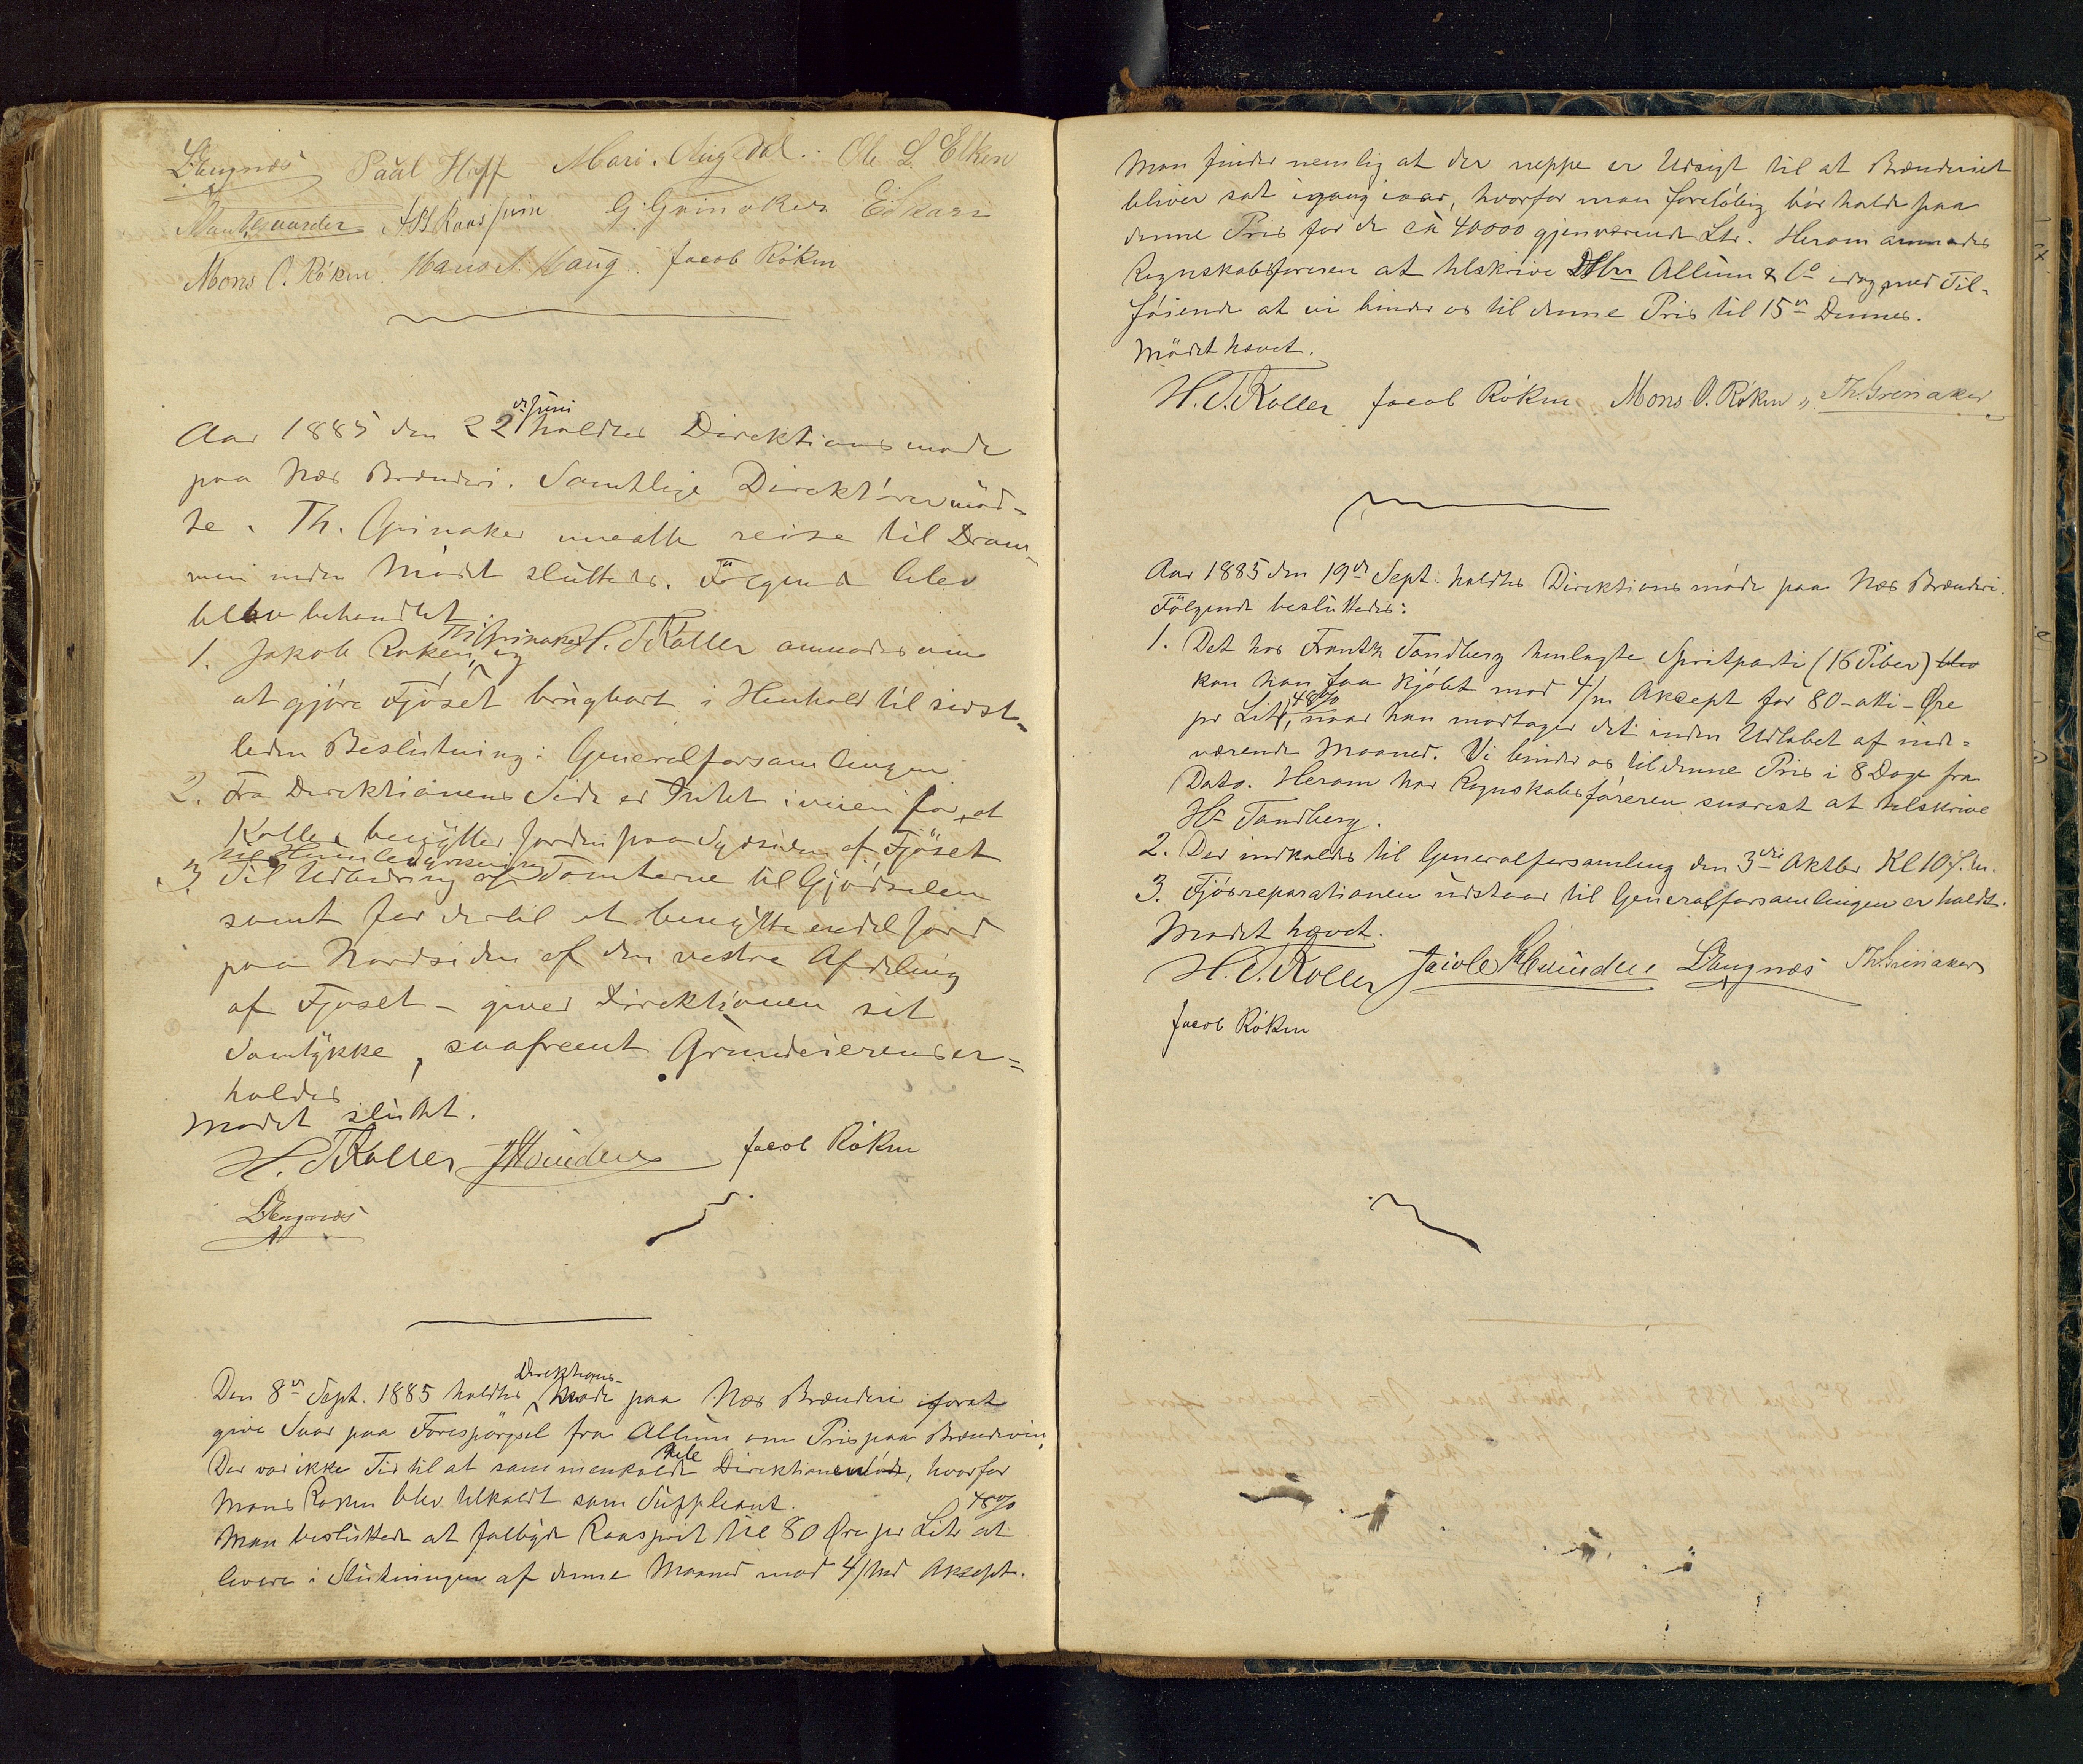 Paul Hoff Mari. Augedal. Ole L. Elken
G. Grinaker E. Skari
Mons O. Röken. Hans A. Haug. Jacob Röken
Aar 1885 den 22 de Juni holdtes Direktionsmöde
paa Næs Brænderi. Samtlige Direktörer möd-
te. Th. Grinaker maatte reise til Dram-
men inden Mödet sluttedes. Følgende blev
blev behandlet
1. Jakob Röken, Th. Grinaker og H. T. Koller anmodes om
at gjöre Fjöset brugbart i Henhold til sidst-
leden Beslutning i Generalforsamlingen.
2. Fra Direktionens Side er Intet iveien for, at
Koller benytter Jorden paa Sydsiden af Fjöset
til Humledyrkning
3. Til Udbedring af Tomterne til Gjödselen
samt for dertil at benytte endel Jord
paa Nordsiden af den vestre Afdeling
af Fjöset – giver Direktionen sit
Samtykke, saafremt Grundeierens er-
holdes
Mödet sluttet.
H. T. Koller Jacob Röken
Den 8de Sept. 1885 holdtes Direktions- Möde paa Næs Brænderi forat
give Svar paa Forespörgsel fra Allum om Pris paa Brændevin.
Der var ikke Tid til at sammenkalde hele Direktionen, hvorfor
Mons Röken blev tilkaldt som Suppleant.
Man besluttede at falbyde Raasprit til 80 Øre pr Litr 48% at
levere i Slutningen af denne Maaned mod 4/Md Aksept.
Man finder nemlig at der neppe er Udsigt til at Brænderiet
bliver sat igang iaar, hvorfor man foreløbig bör holde paa
denne Pris for de cà 40000 gjenværende Ltr. Herom anmodes
Regnskabsføreren at tilskrive DHrr Allum & Co idag med Til-
föiende at vi binder os til denne Pris til 15de Dennes.
Mödet hævet.
H. T. Koller Jacob Röken Mons O. Röken Th. Grinaker
Aar 1885 den 19de Sept. holdtes Direktionsmöde paa Næs Brænderi.
Fölgende besluttedes:
1. Det hos Frantz Tandberg henlagte Spritparti (16 Piber) blev
kan han faa kjöbt mod 4/m Aksept for 80 – otti – Øre
pr Litr 48%, naar han modtager det inden Udløbet af inde-
værende Maaned. Vi binder os til denne Pris i 8 Dage fra
Dato. Herom har Regnskabsføreren snarest at tilskrive
Hr Tandberg.
2. Der indkaldes til Generalforsamling den 3die Oktbr Kl 10 f. m.
3. Fjösreparationen udstaar til Generalforsamlingen er holdt.
Mödet hævet.
H. T. Koller Th. Grinaker
Jacob Röken